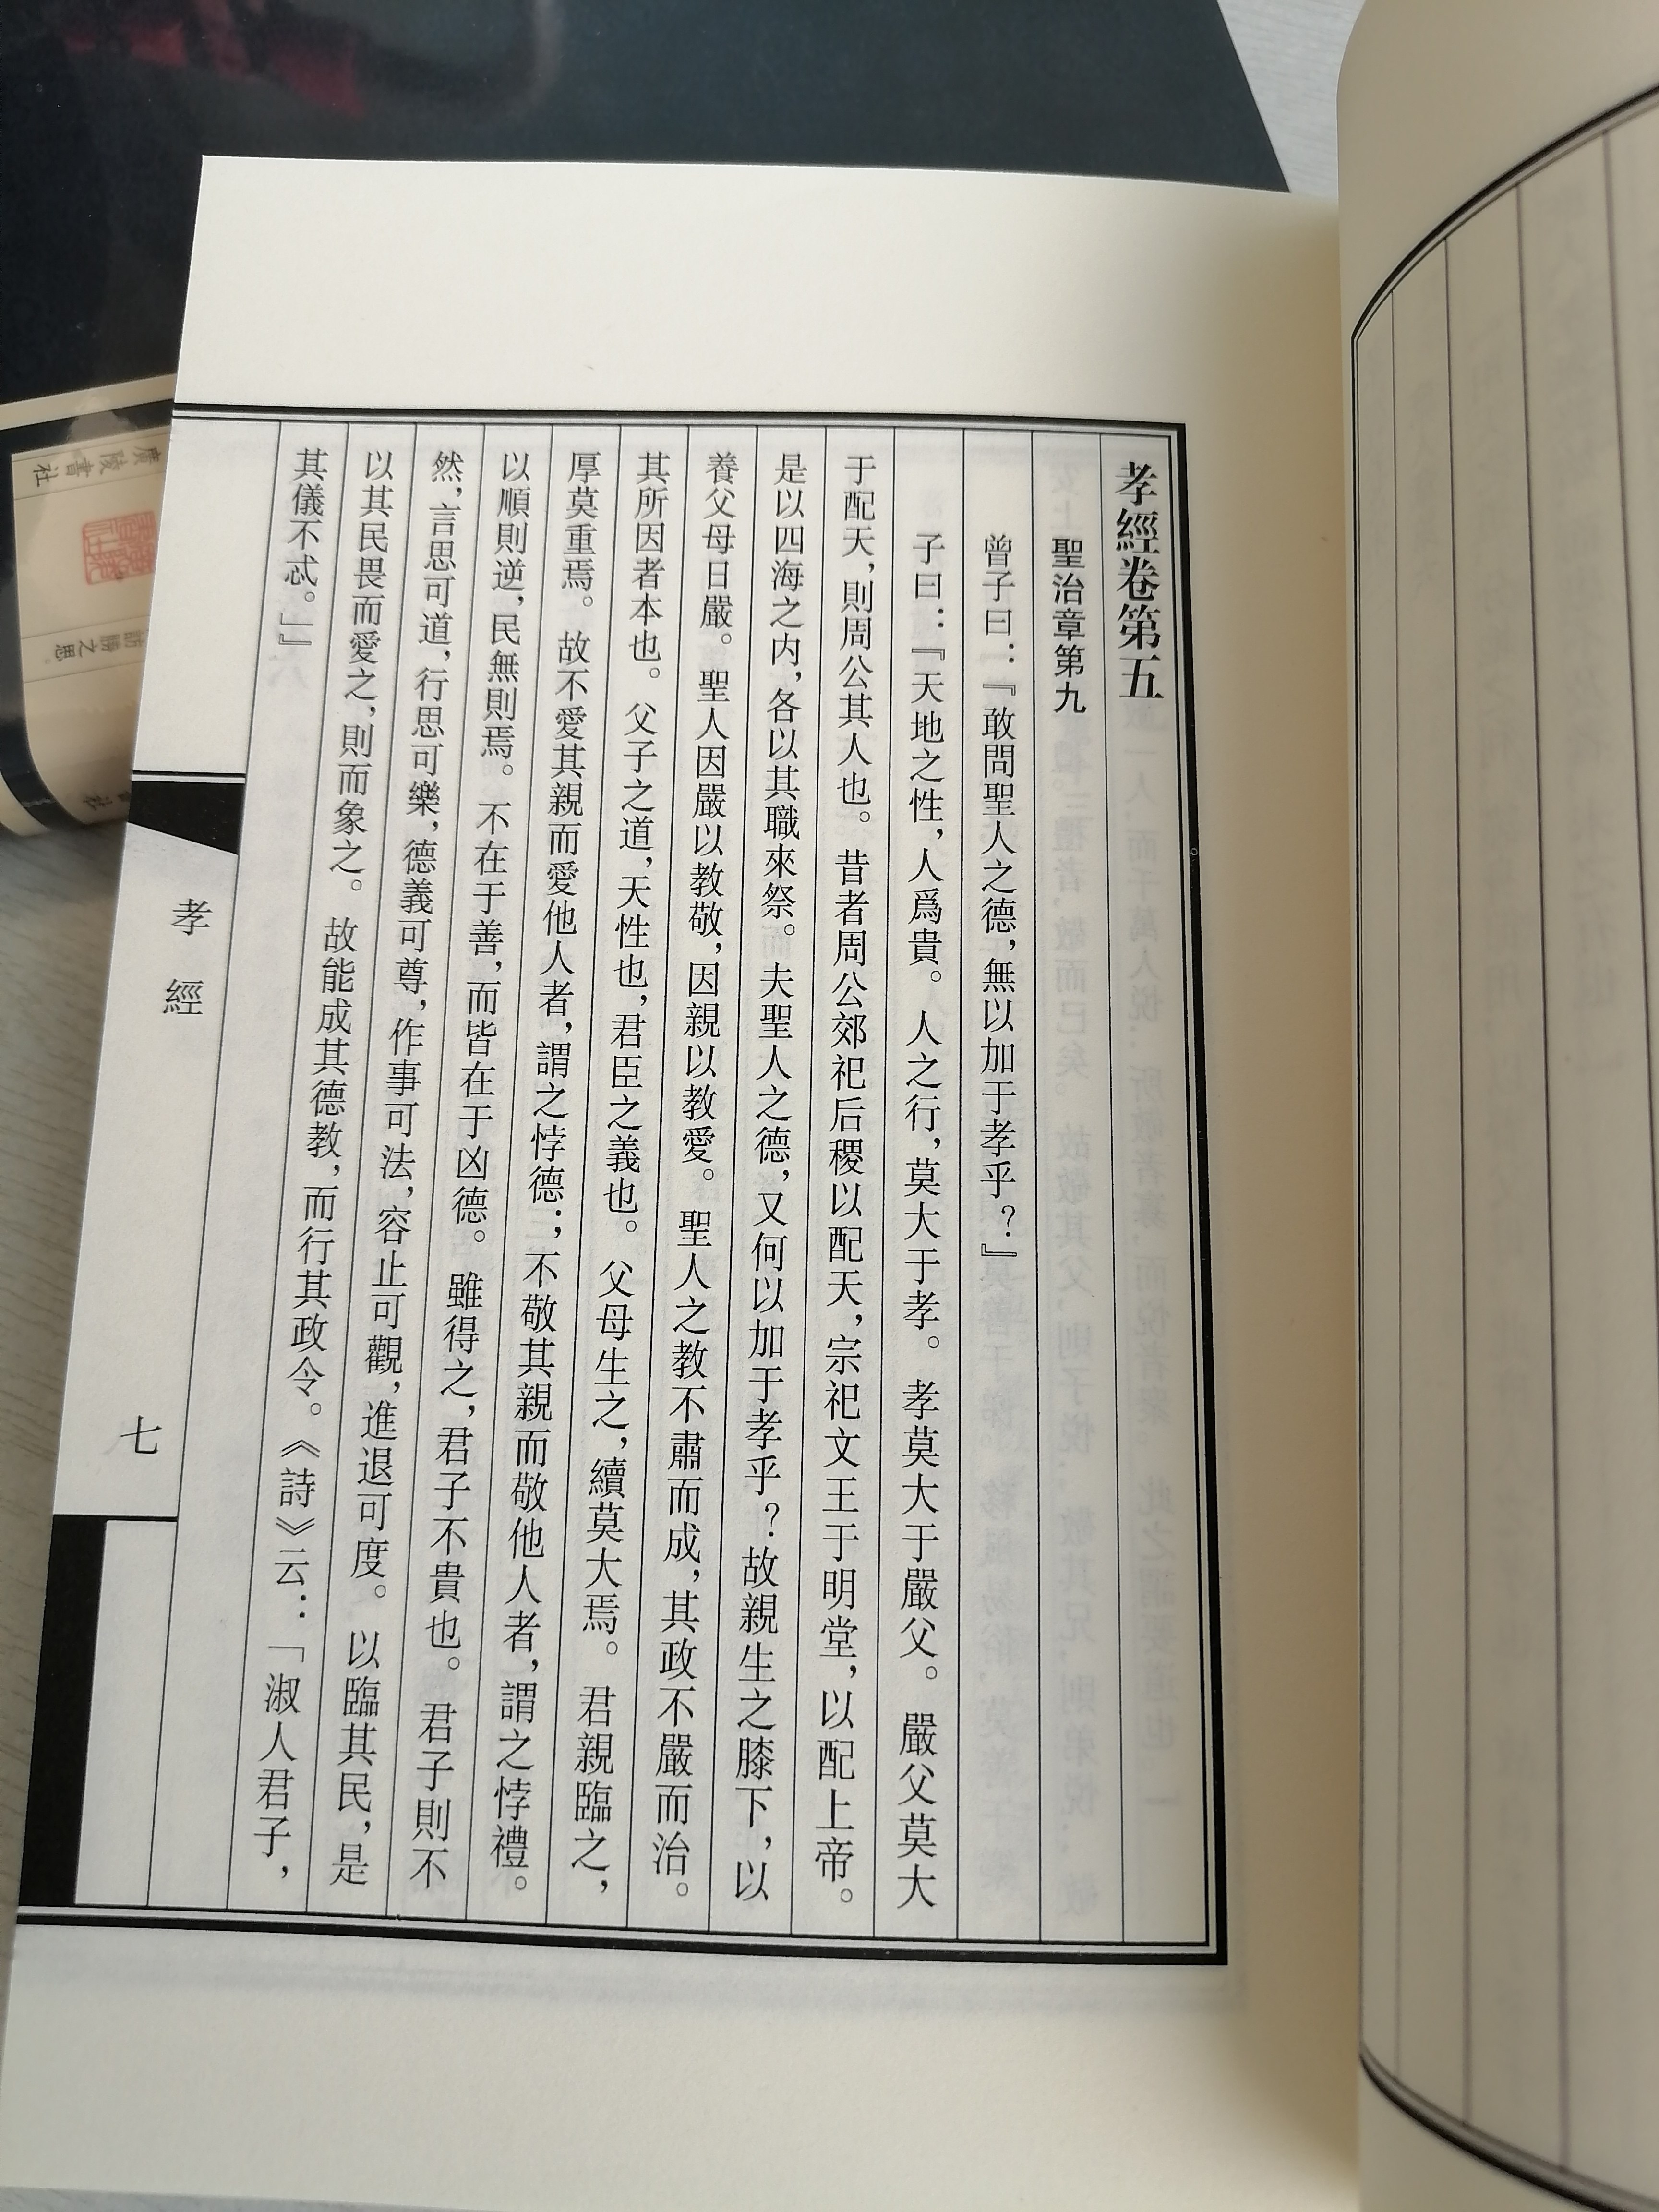 孝經卷第五
聖治章第九
曾子曰：『敢問聖人之德，無以加于孝乎？』
子曰：『天地之性，人爲貴。人之行，莫大于孝。孝莫大于嚴父。嚴父莫大
于配天，則周公其人也。昔者周公郊祀后稷以配天，宗祀文王于明堂，以配上帝。
是以四海之内，各以其職來祭。夫聖人之德，又何以加于孝乎？故親生之膝下，以
養父母日嚴。聖人因嚴以教敬，因親以教愛。聖人之教不肅而成，其政不嚴而治。
其所因者本也。父子之道，天性也，君臣之義也。父母生之，續莫大焉。君親臨之，
厚莫重焉。故不愛其親而愛他人者，謂之悖德；不敬其親而敬他人者，謂之悖禮。
以順則逆，民無則焉。不在于善，而皆在于凶德。雖得之，君子不貴也。君子則不
然，言思可道，行思可樂，德義可尊，作事可法，容止可觀，進退可度。以臨其民，是
以其民畏而愛之，則而象之。故能成其德教，而行其政令。《詩》云：「淑人君子，
其儀不忒。」』
孝經
七
廣陵書社